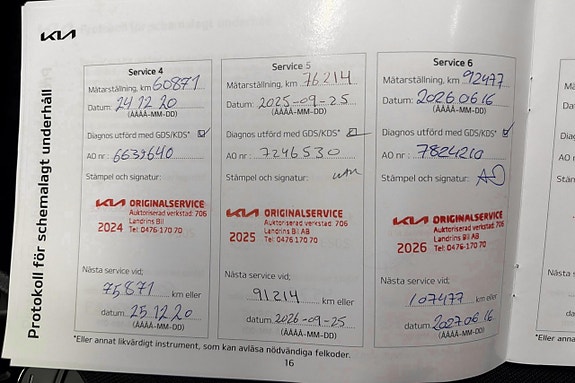 KIA
Protokoll för schemalagt underhåll
Service 4
Mätarställning, km 60871
Datum: 24.12.20
(ÅÅÅÅ-MM-DD)
Diagnos utförd med GDS/KDS*
AO nr: 6639640
Stämpel och signatur:
KIA ORIGINALSERVICE
Auktoriserad verkstad: 706
Landrins Bil
2024 Tel: 0476-170 70
Nästa service vid;
75871 km eller
datum: 25.12.20
(ÅÅÅÅ-MM-DD)
Service 5
Mätarställning, km 76214
Datum: 2025-09-25
(ÅÅÅÅ-MM-DD)
Diagnos utförd med GDS/KDS*
AO nr: 7246530
Stämpel och signatur:
KIA ORIGINALSERVICE
Auktoriserad verkstad: 706
Landrins Bil AB
2025 Tel: 0476-170 70
Nästa service vid;
91214 km eller
datum: 2026-09-25
(ÅÅÅÅ-MM-DD)
Service 6
Mätarställning, km 92477
Datum: 2026.06.16
(ÅÅÅÅ-MM-DD)
Diagnos utförd med GDS/KDS*
AO nr: 7824210
Stämpel och signatur:
KIA ORIGINALSERVICE
Auktoriserad verkstad: 706
Landrins Bil AB
2026 Tel: 0476-170 70
Nästa service vid;
107477 km eller
datum: 2027.06.16
(ÅÅÅÅ-MM-DD)
*Eller annat likvärdigt instrument, som kan avläsa nödvändiga felkoder.
16